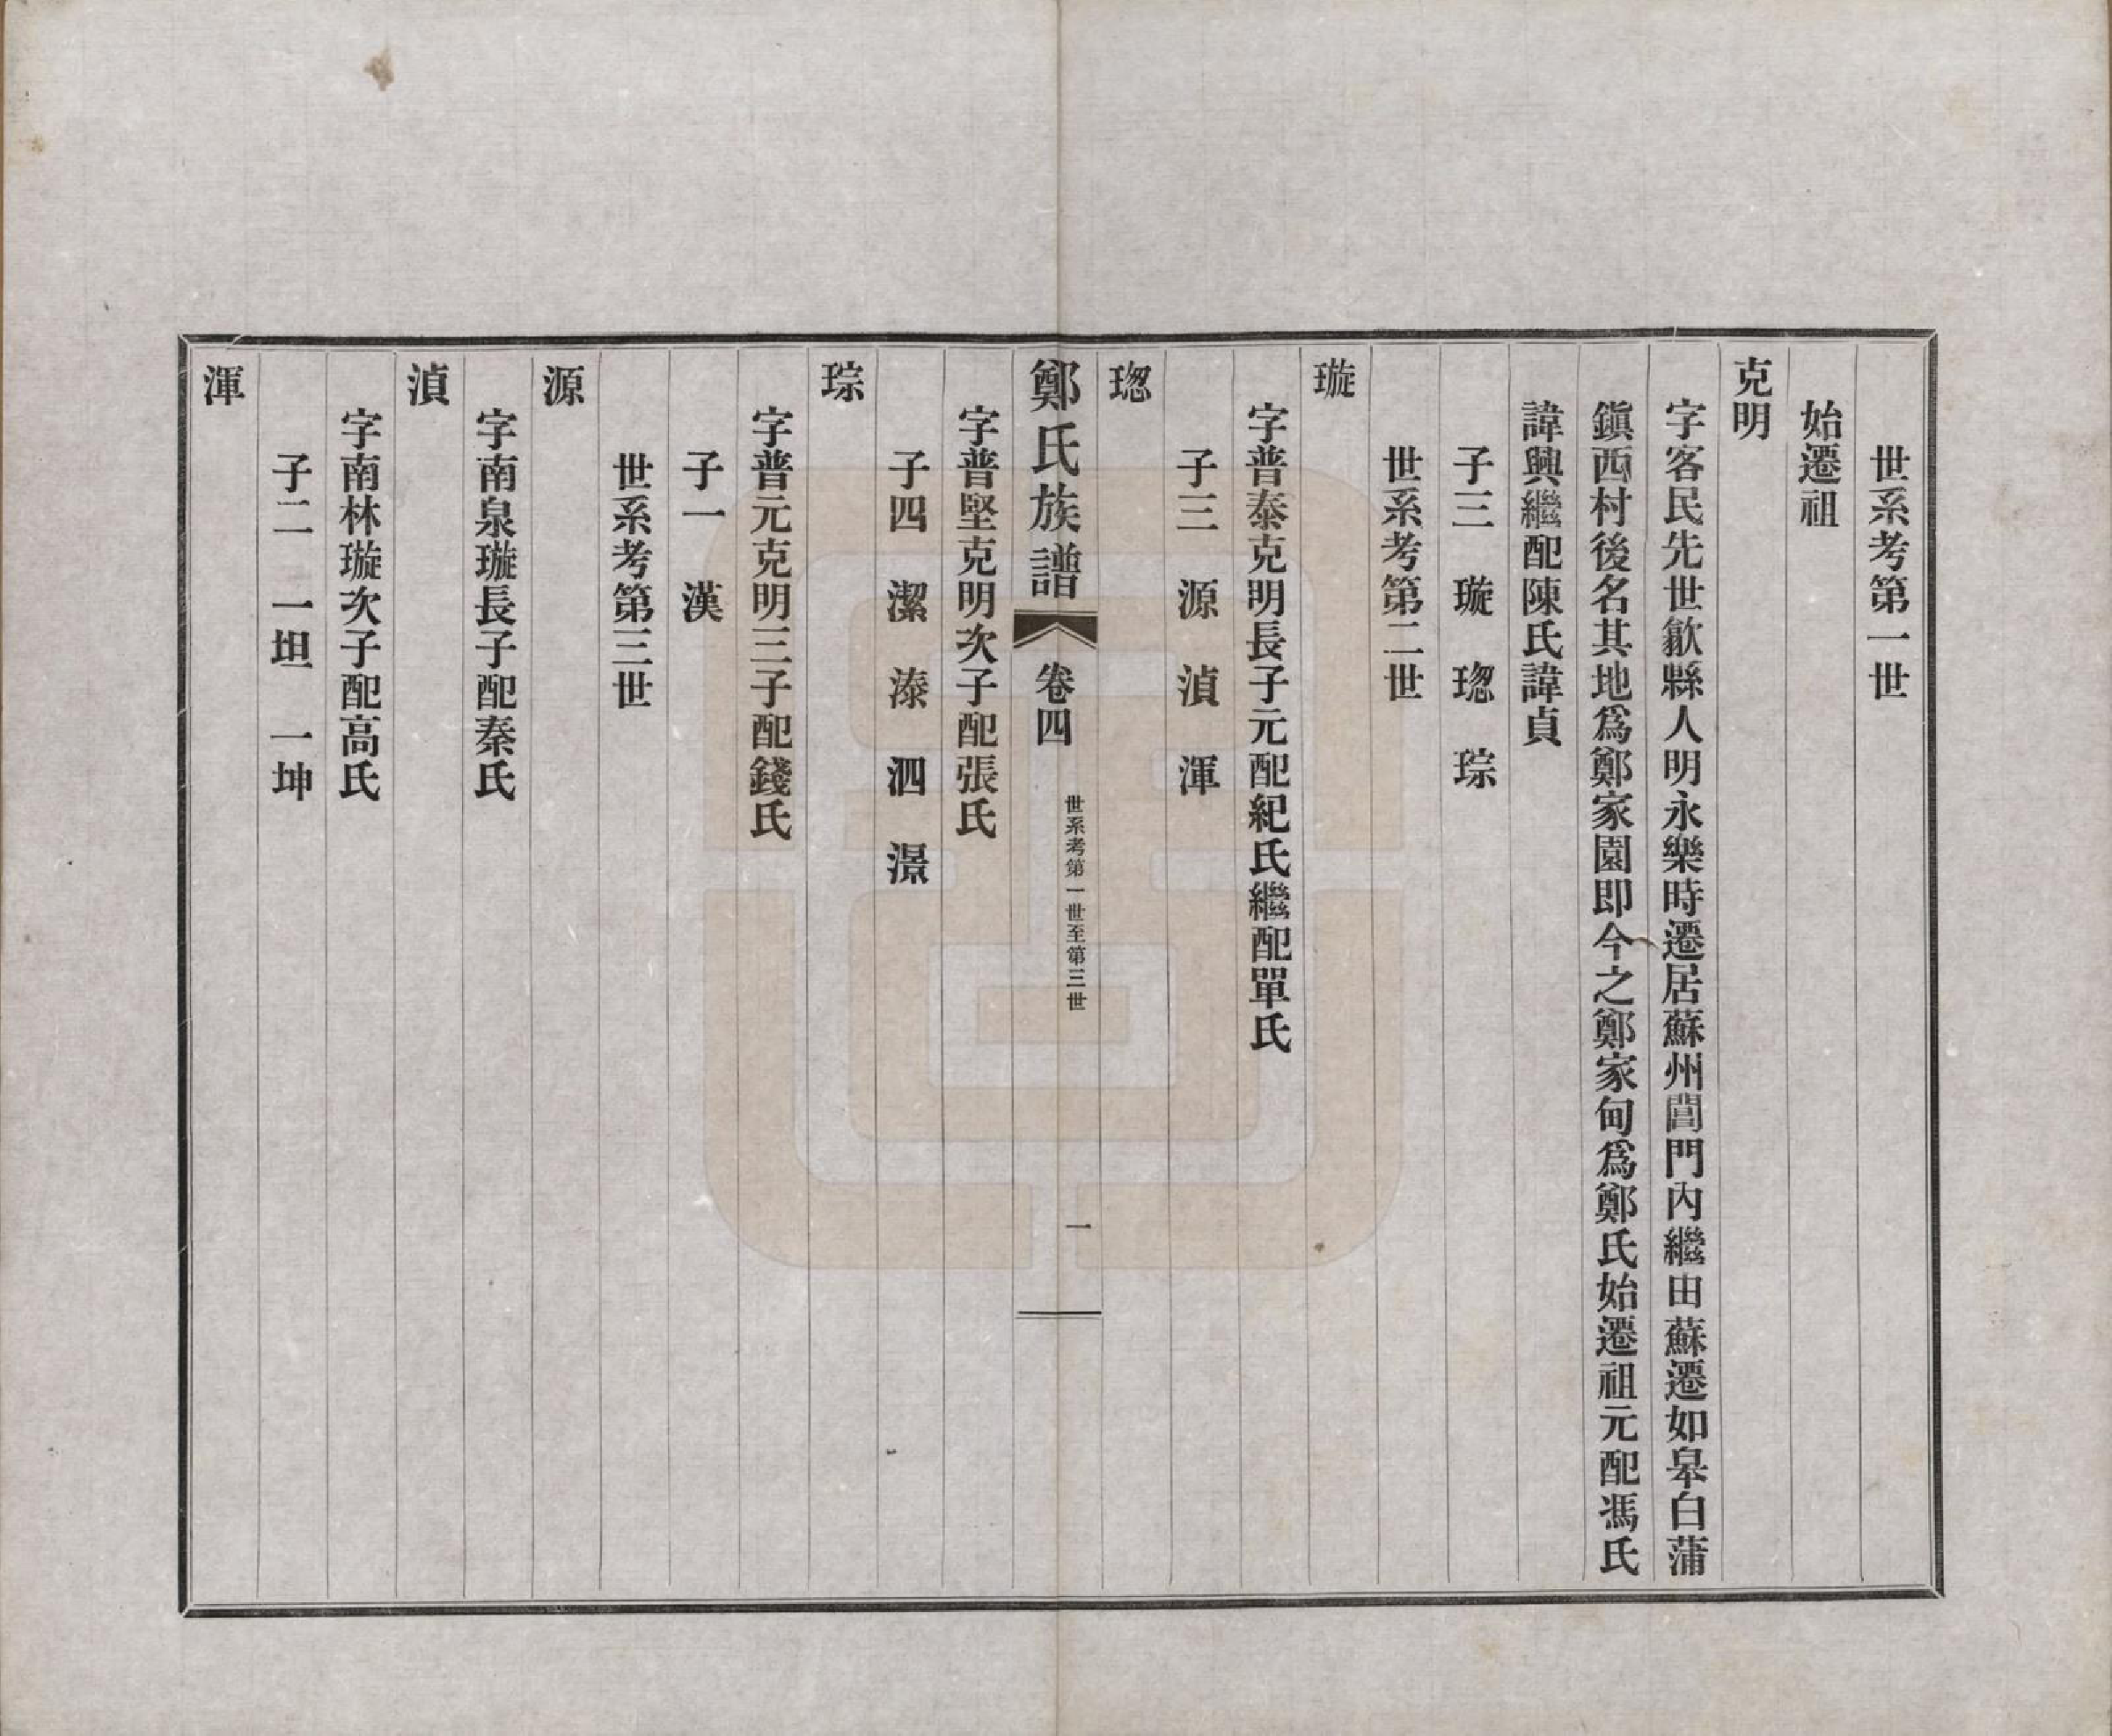 世系考第一世
始遷祖
克明
字客民先世歙縣人明永樂時遷居蘇州閶門內繼由蘇遷如皋白蒲
鎭西村後名其地爲鄭家園即今之鄭家甸爲鄭氏始遷祖元配馮氏
諱興繼配陳氏諱貞
子三 璇 璁 琮
世系考第二世
璇
字普泰克明長子元配紀氏繼配單氏
子三 源 湞 渾
璁
鄭氏族譜 卷四 世系考第一世至第三世 一
字普堅克明次子配張氏
子四 潔 溱 泗 澋
琮
字普元克明三子配錢氏
子一 漢
世系考第三世
源
字南泉璇長子配秦氏
湞
字南林璇次子配高氏
子二 一坦 一坤
渾